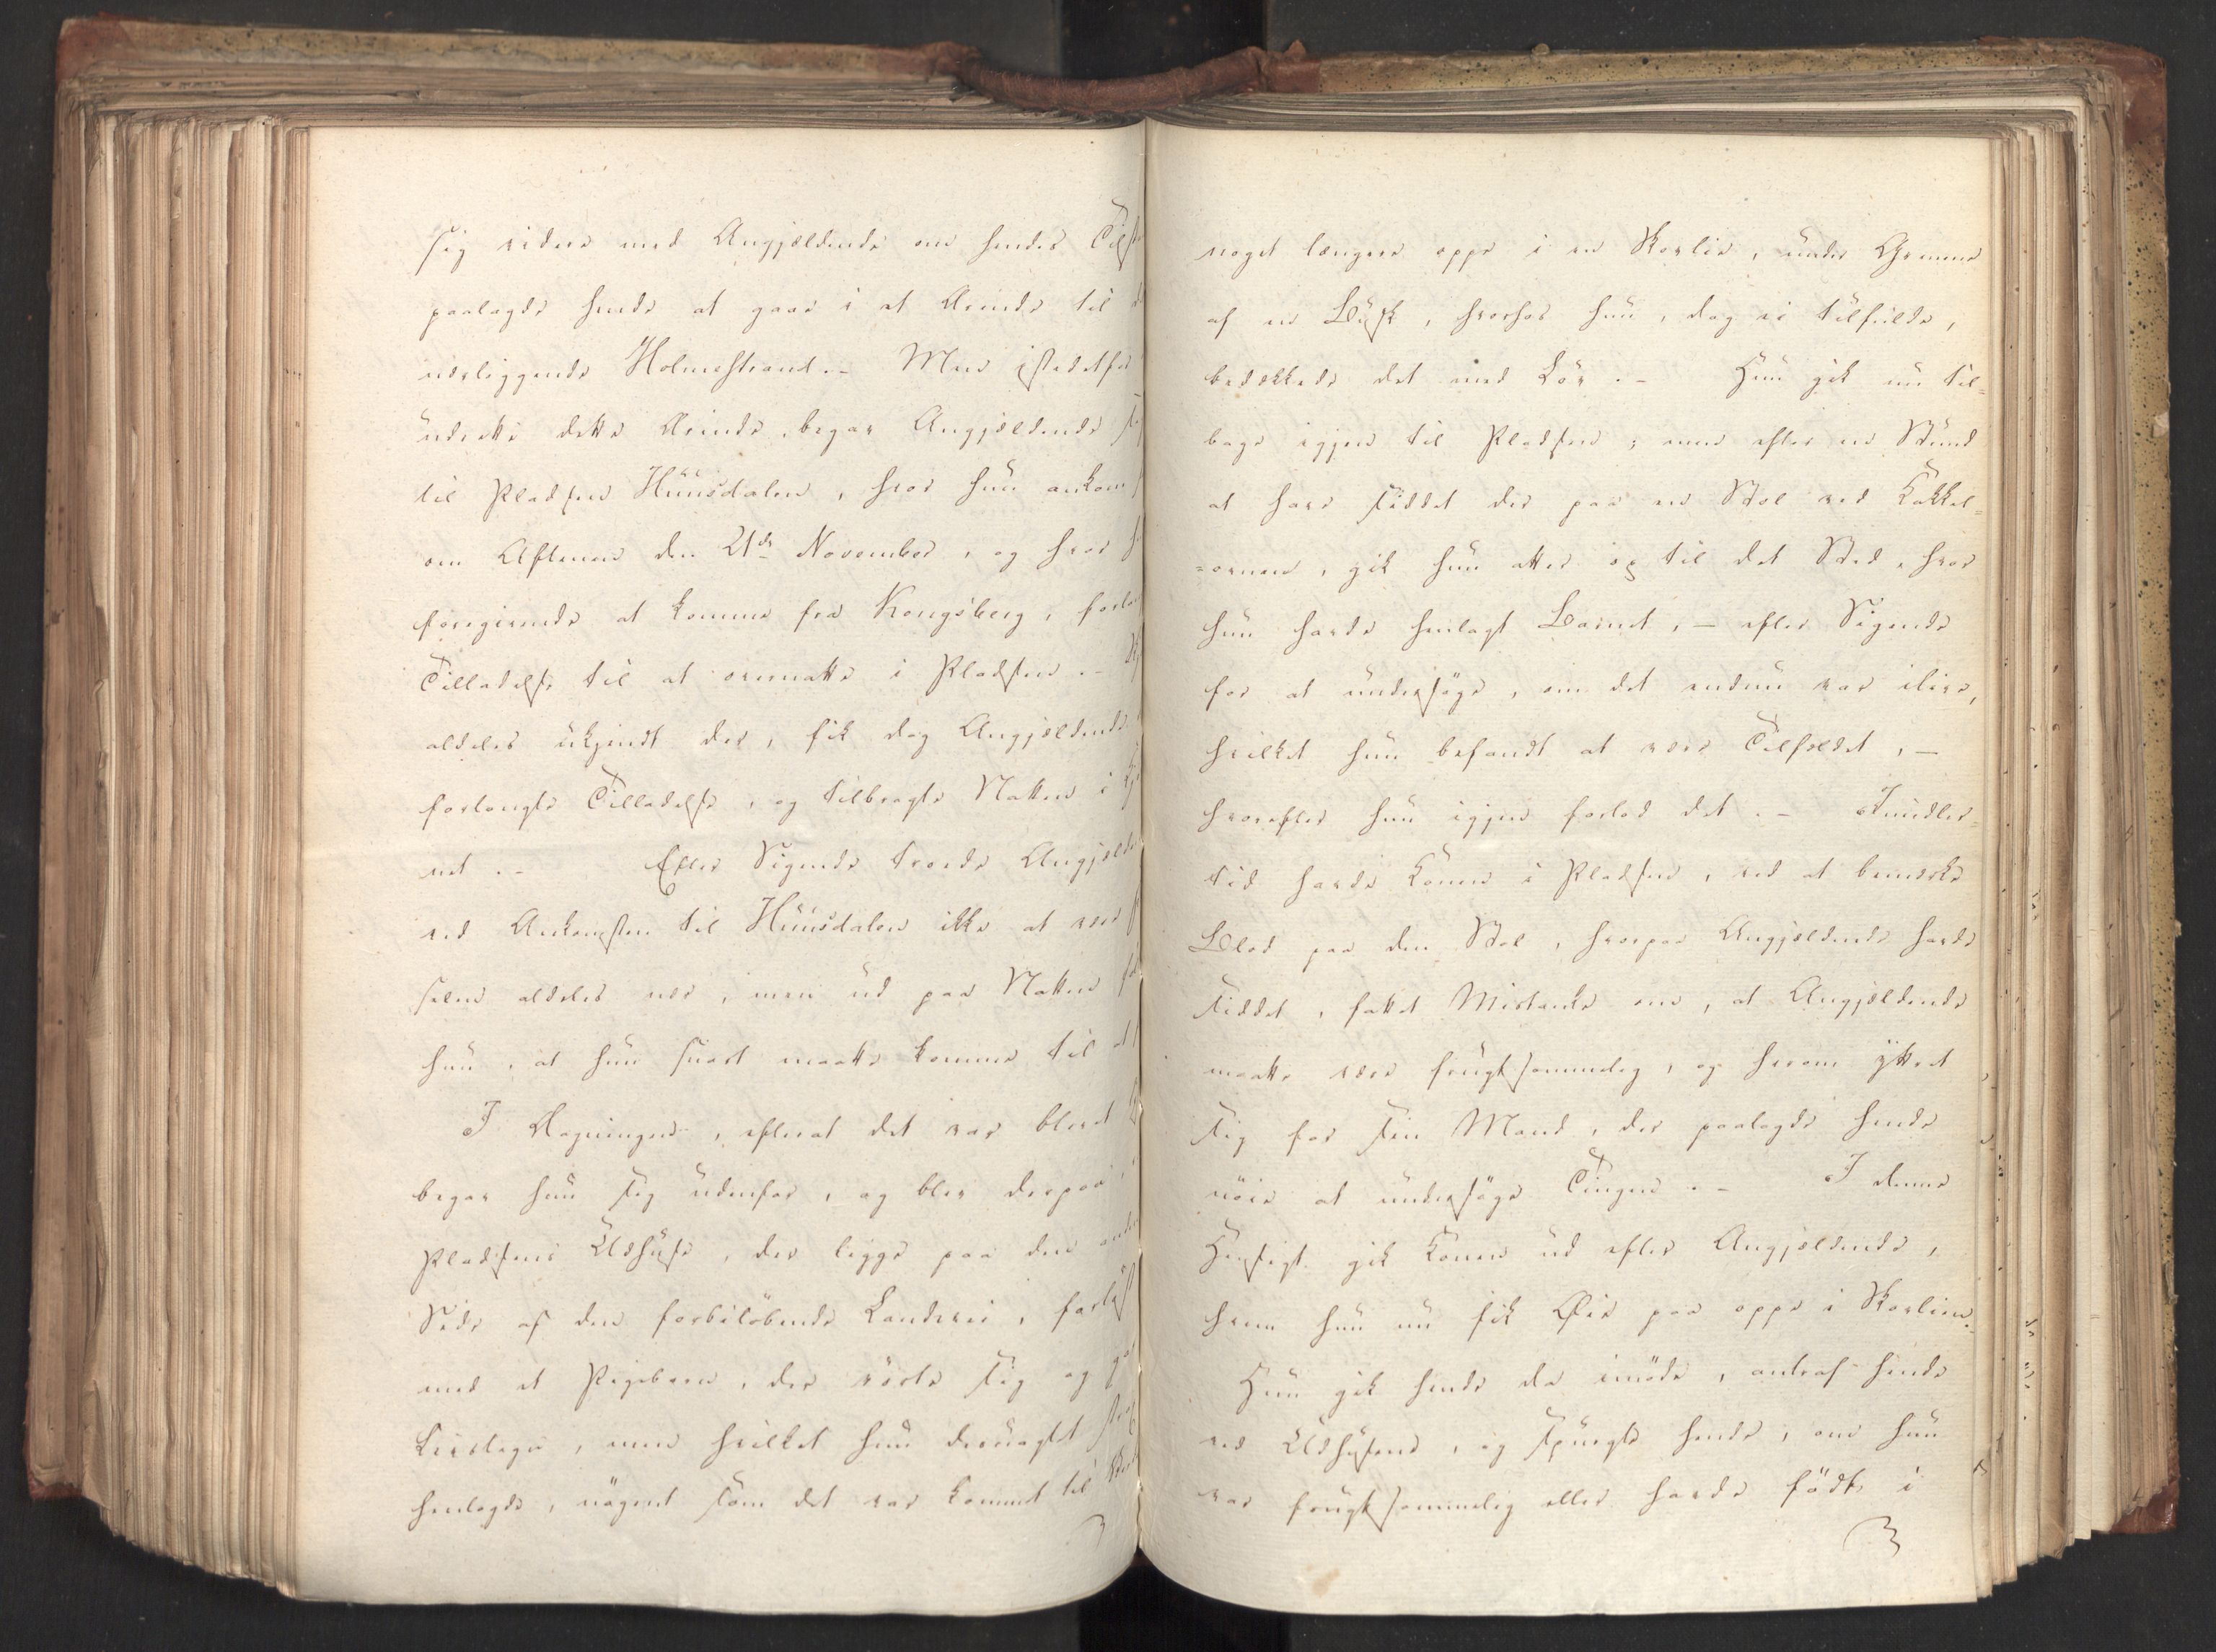 sig videre med Angjældende om hendes
paalagde hende at gaae i et Ærinde til
nærliggende Holmestrand. – Men istedetfor
udrette dette Ærinde, begav Angjældende
til Pladsen Huusdalen, hvor hun ankom
om Aftenen den 21de November, og hvor
foregivende at komme fra Kongsberg,
Tilladelse til at overnatte i Pladsen. –
aldeles ukjendt der, fik dog Angjældende
forlangte Tilladelse, og tilbragte Natten i
net. – Efter Sigende troede Angjælde
ved Ankomsten til Huusdalen ikke at være
selen aldeles nær, men ud paa Natten
hun, at hun snart maatte komme til
I Dagningen, efterat det var blevet
begav hun sig udenfor, og blev derpaa
Pladsens Ildhuse, der ligge paa den
Side af den forbiløbende Landevei,
med et Pigebarn, der rørte sig og
Livstegn, men hvilket hun desuagtet
henlagde, nøgent som det var kommet til
noget længere oppe i en Skovlie, under Grenene
af en Busk, hvorhos hun, dog ei tilfulde,
bedækkede det med Løv. – Hun gik nu til=
bage igjen til Pladsen; men efter en Stund
at have siddet der paa en Stol ved Kakkel=
=ovnen, gik hun atter op til det Sted, hvor
hun havde henlagt Barnet, – efter Sigende
for at undersøge, om det endnu var ilive,
hvilket hun befandt at være Tilfældet, –
hvorefter hun igjen forlod det. – Imidler=
tid havde Konen i Pladsen, ved at bemærke
Blod paa den Stol, hvorpaa Angjældende havde
siddet, fattet Mistanke om, at Angjældende
maatte være frugtsommelig, og herom yttret
sig for sin Mand, der paalagde hende
nøie at undersøge Tingen. – I denne
Hensigt gik Konen ud efter Angjældende,
hvem hun nu fik Øie paa oppe i Skovlien.
Hun gik hende da imøde, antraf hende
ved Ildhusene, og spurgte hende, om hun
var frugtsommelig eller havde født, i